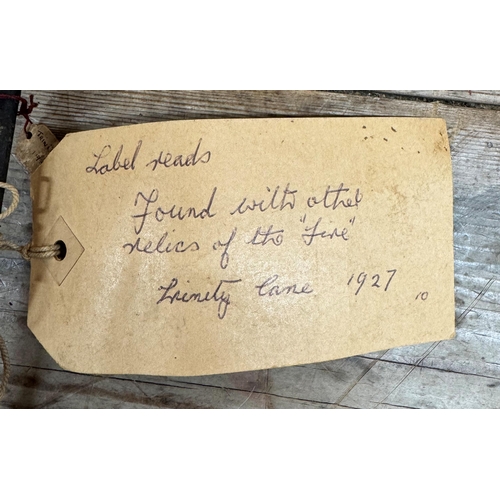 Label reads
Found with other
relics of the "Fire"
Trinity Lane 1927
10